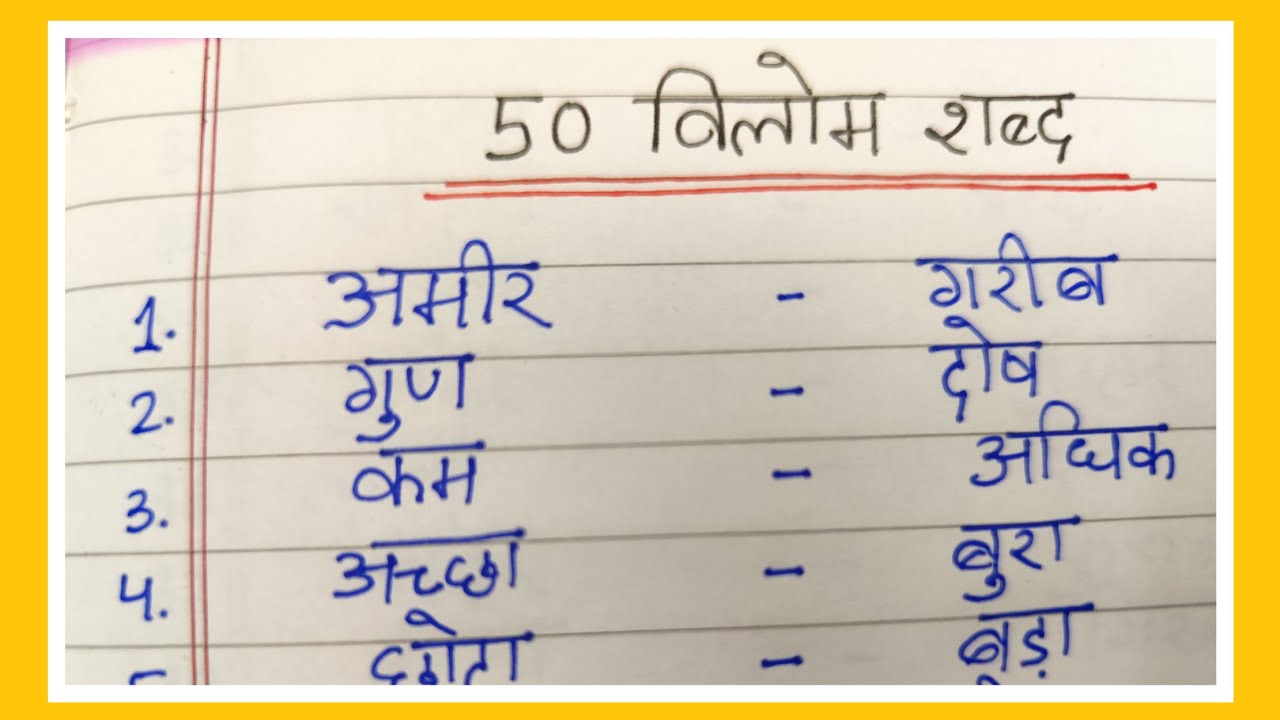 50 विलोम शब्द
1. अमीर - गरीब
2. गुण - दोष
3. कम - अधिक
4. अच्छा - बुरा
छोटा - बड़ा